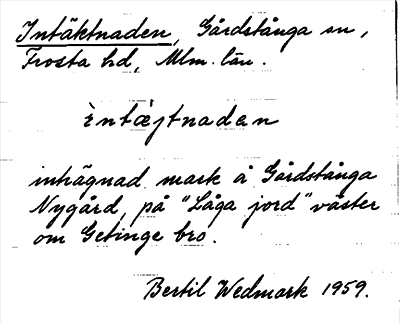 Intäktnaden, Gårdstånga sn,
Frosta hd, Mlm. län.
èntæjtnaden
inhägnad mark å Gårdstånga
Nygård, på "Låga jord" väster
om Getinge bro.
Bertil Wedmark 1959.